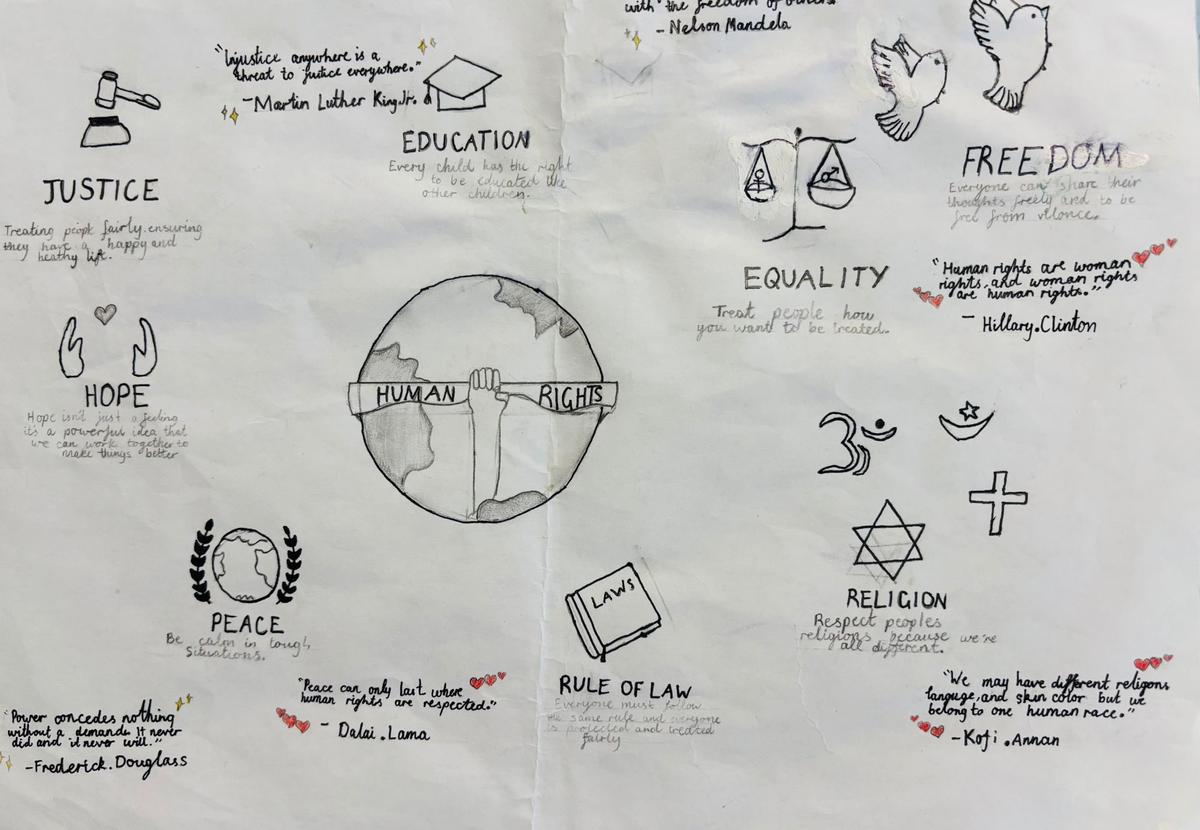 with the freedom of others."
- Nelson Mandela
"Injustice anywhere is a
threat to justice everywhere."
-Martin Luther King.Jr.
EDUCATION
Every child has the right
to be educated like
other children.
JUSTICE
Treating people fairly.ensuring
they have a happy and
heathy life.
FREEDOM
Everyone can share their
thoughts freely and to be
free from vilonce.
EQUALITY
Treat people how
you want to be treated.
"Human rights are woman
rights, and woman rights
are human rights."
- Hillary.Clinton
HOPE
Hope isn't just a feeling
its a powerful idea that
we can work together to
make things better
HUMAN RIGHTS
PEACE
Be calm in tough
Situations.
LAWS
RULE OF LAW
Everyone must follow
the same rule and everyone
is protected and treated
fairly
RELIGION
Respect peoples
religions because we're
all different.
"Power concedes nothing
without a demand. It never
did and it never will."
-Frederick.Douglass
"Peace can only last where
human rights are respected."
- Dalai.Lama
"We may have different religons
languge,and skin color but we
belong to one human race."
-Kofi .Annan